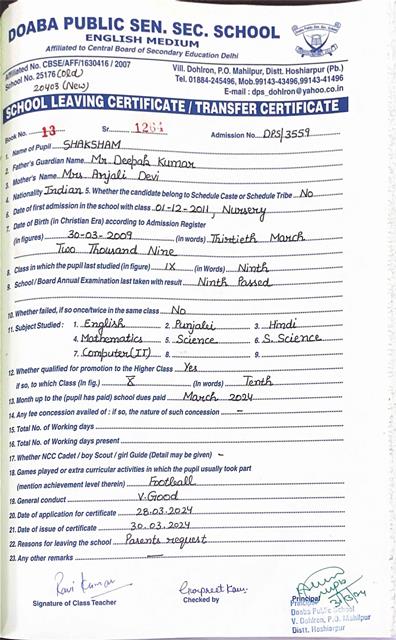 DOABA PUBLIC SEN. SEC. SCHOOL
ENGLISH MEDIUM
Affiliated to Central Board of Secondary Education Delhi
Affiliated No. CBSE/AFF/1630416 / 2007
School No. 25176 (Old)
20403 (New)
Vill. Dohlron, P.O. Mahilpur, Distt. Hoshiarpur (Pb.)
Tel. 01884-245496, Mob.99143-43496,99143-41496
E-mail : dps_dohlron@yahoo.co.in
SCHOOL LEAVING CERTIFICATE / TRANSFER CERTIFICATE
Book No. 13 Sr. 1264 Admission No. DPS/3559
1. Name of Pupil SHAKSHAM
2. Father's Guardian Name Mr. Deepak Kumar
3. Mother's Name Mrs. Anjali Devi
4. Nationality Indian 5. Whether the candidate belong to Schedule Caste or Schedule Tribe No
6. Date of first admission in the school with class 01-12-2011, Nursery
7. Date of Birth (in Christian Era) according to Admission Register
(in figures) 30-03-2009 (in words) Thirtieth March
Two Thousand Nine
8. Class in which the pupil last studied (in figure) IX (in Words) Ninth
9. School / Board Annual Examination last taken with result Ninth Passed
10. Whether failed, if so once/twice in the same class No
11. Subject Studied : 1. English 2. Punjabi 3. Hindi
4. Mathematics 5. Science 6. S. Science
7. Computer (IT) 8. 9.
12. Whether qualified for promotion to the Higher Class Yes
If so, to which Class (In fig.) X (in Words) Tenth
13. Month up to the (pupil has paid) school dues paid March 2024
14. Any fee concession availed of : if so, the nature of such concession -
15. Total No. of Working days
16. Total No. of Working days present
17. Whether NCC Cadet / boy Scout / girl Guide (Detail may be given) -
18. Games played or extra curricular activities in which the pupil usually took part
(mention achievement level therein) Football
19. General conduct V. Good
20. Date of application for certificate 28.03.2024
21. Date of issue of certificate 30.03.2024
22. Reasons for leaving the school Parents request
23. Any other remarks —
Ravi Kumar
Signature of Class Teacher
Checked by
Principal
Principal
Doaba Public School
V. Dohlron, P.O. Mahilpur
Distt. Hoshiarpur